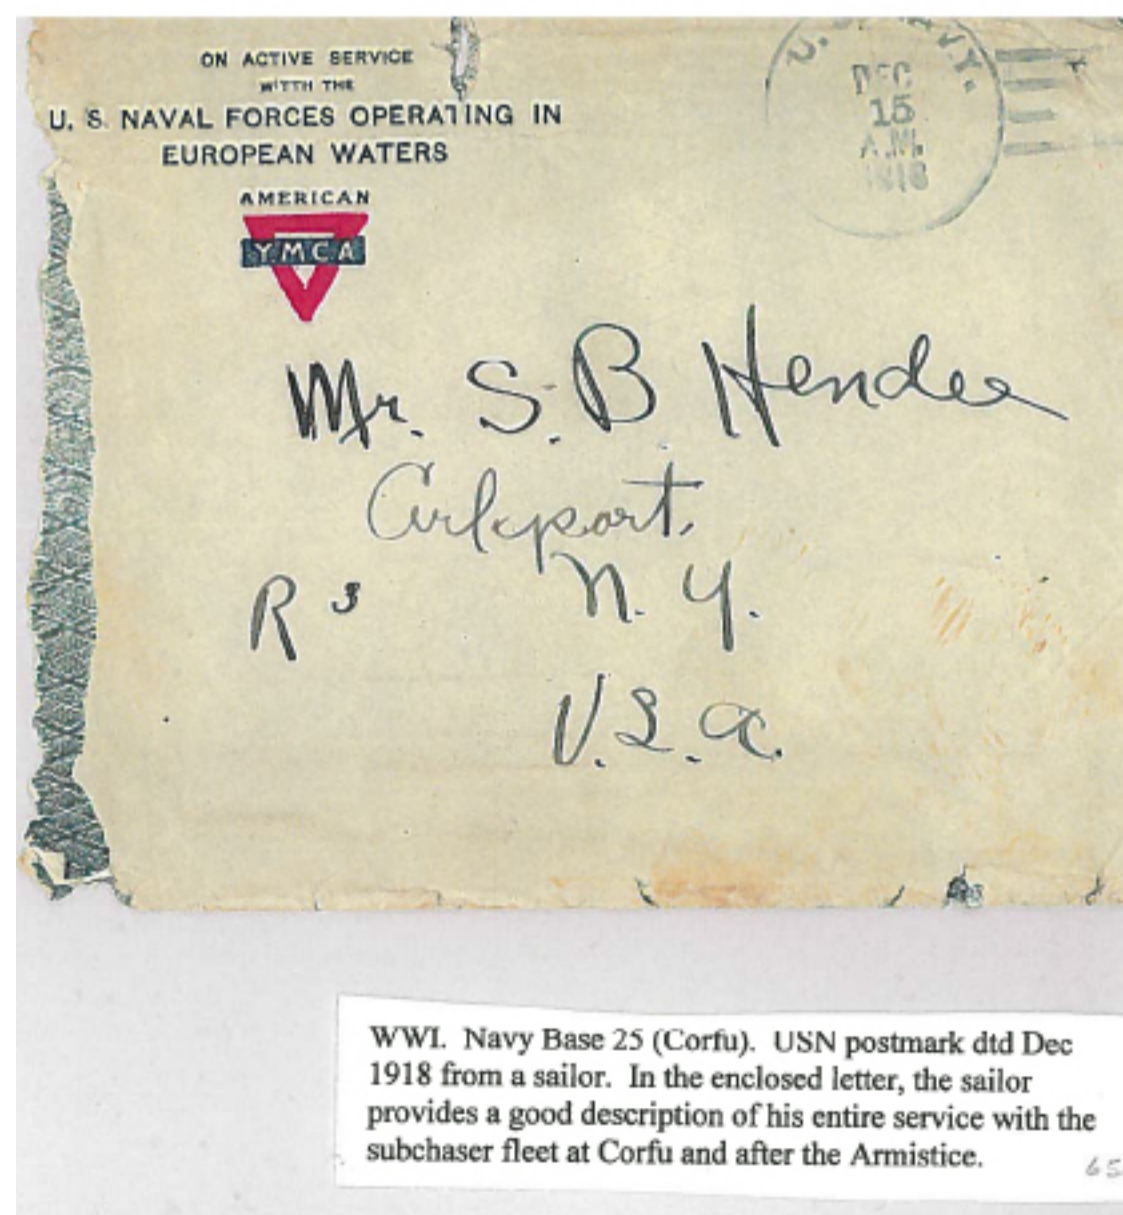 ON ACTIVE SERVICE
WITH THE
U. S. NAVAL FORCES OPERATING IN
EUROPEAN WATERS
AMERICAN
YMCA
U. S. NAVY.
DEC
15
A.M.
1918
Mr. S. B Hendee
Arkport,
R 3 N. Y.
U. S. A.
WWI. Navy Base 25 (Corfu). USN postmark dtd Dec
1918 from a sailor. In the enclosed letter, the sailor
provides a good description of his entire service with the
subchaser fleet at Corfu and after the Armistice.
65